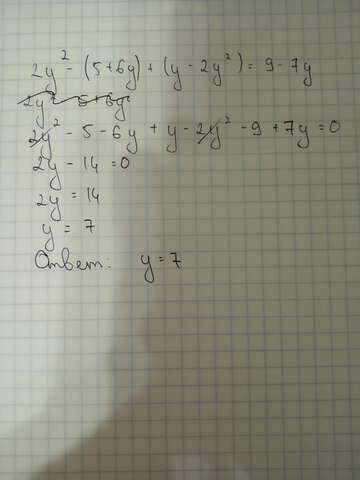 2y² - (5+6y) + (y - 2y²) = 9 - 7y
2y² - 5+6y
2y² - 5 - 6y + y - 2y² - 9 + 7y = 0
2y - 14 = 0
2y = 14
y = 7
Ответ: y = 7